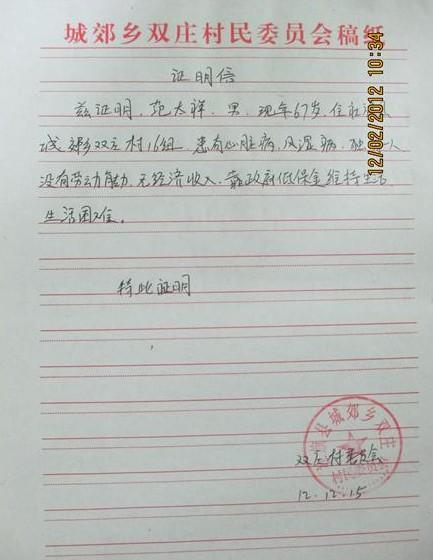 城郊乡双庄村民委员会稿纸
证明信
兹证明,范太祥,男,现年67岁,住
城郊乡双庄村16组,患有心脏病,风湿病,独一人
没有劳动能力,无经济收入,靠政府低保金维持生活,
生活困难。
特此证明
县城郊乡双庄
村民委员会
双庄村委会
12.12.15
12/02/2012 10:34